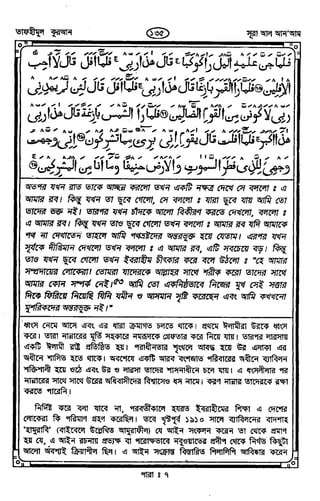 তাফহীমুল কুরআন
১৩৫
সূরা আল আন'আম
فَلَمَّا جَنَّ عَلَيْهِ الَّيْلُ رَاٰ كَوْكَبًا ۚ قَالَ هٰذَا رَبِّيْ ۚ فَلَمَّآ اَفَلَ قَالَ لَآ اُحِبُّ
الْاٰفِلِيْنَ ۞ فَلَمَّا رَاَ الْقَمَرَ بَازِغًا قَالَ هٰذَا رَبِّيْ ۚ فَلَمَّآ اَفَلَ قَالَ لَئِنْ لَّمْ يَهْدِنِيْ
رَبِّيْ لَاَكُوْنَنَّ مِنَ الْقَوْمِ الضَّآلِّيْنَ ۞ فَلَمَّا رَاَ الشَّمْسَ بَازِغَةً قَالَ هٰذَا رَبِّيْ
هٰذَآ اَكْبَرُ ۚ فَلَمَّآ اَفَلَتْ قَالَ يٰقَوْمِ اِنِّيْ بَرِيْٓءٌ مِّمَّا تُشْرِكُوْنَ ۞ اِنِّيْ وَجَّهْتُ
وَجْهِيَ لِلَّذِيْ فَطَرَ السَّمٰوٰتِ وَالْاَرْضَ حَنِيْفًا وَّمَآ اَنَا مِنَ الْمُشْرِكِيْنَ ۞
অতপর যখন রাত তাকে আচ্ছন্ন করলো তখন একটি নক্ষত্র দেখে সে বললো ঃ এ
আমার রব। কিন্তু যখন তা ডুবে গেলো, সে বললো ঃ যারা ডুবে যায় আমি তো
তাদের ভক্ত নই। তারপর যখন চাঁদকে আলো বিকীরণ করতে দেখলো, বললো ঃ
এ আমার রব। কিন্তু যখন তাও ডুবে গেলো তখন বললো ঃ আমার রব যদি আমাকে
পথ না দেখাতেন তাহলে আমি পথভ্রষ্টদের অন্তরভুক্ত হয়ে যেতাম। এরপর যখন
সূর্যকে দীপ্তিমান দেখলো তখন বললো ঃ এ আমার রব, এটি সবচেয়ে বড়। কিন্তু
তাও যখন ডুবে গেলো তখন ইবরাহীম চীৎকার করে বলে উঠলো ঃ "হে আমার
সম্প্রদায়ের লোকেরা! তোমরা যাদেরকে আল্লাহর সাথে শরীক করো তাদের সাথে
আমার কোন সম্পর্ক নেই। আমি তো একনিষ্ঠভাবে নিজের মুখ সেই সত্তার
দিকে ফিরিয়ে নিয়েছি যিনি যমীন ও আসমান সৃষ্টি করেছেন এবং আমি কখনো
মুশরিকদের অন্তরভুক্ত নই।"
ধ্বংস নেমে আসে এবং এর ধারা ক্রমাগত চলতে থাকে। প্রথমে ঈলামীরা উরকে ধ্বংস
করে। তারা নান্নারের মূর্তি সহকারে নমরূদকে গ্রেফতার করে নিয়ে যায়। তারপর লারসায়
একটি ঈলামী রাষ্ট্র প্রতিষ্ঠিত হয়। পরাধীনতার শৃংখলে আবদ্ধ হয়ে উর এলাকা এর
অধীনে শাসিত হতে থাকে। অবশেষে একটি আরব বংশজাত পরিবারের অধীনে ব্যাবিলন
শক্তিশালী হয়ে ওঠে এবং উর ও লারসা তাদের শাসনাধীনে চলে যায়। এ ধ্বংসলীলার পর
নান্নারের সাথে সাথে উরের অধিবাসীদের বিশ্বাসেও ধস নামে। কারণ নান্নার তাদেরকে রক্ষা
করতে পারেনি।
নির্দিষ্ট করে বলা যাবে না, পরবর্তীকালে হযরত ইবরাহীমের শিক্ষা এ দেশের
লোকেরা কি পরিমাণ গ্রহণ করেছিল। তবে খৃষ্টপূর্ব ১৯১০ সালে ব্যাবিলনের বাদশাহ
'হামুরাবি' (বাইবেলে উল্লেখিত আমুরাফীল) যে আইন সংকলন করেন তা থেকে প্রমাণ
হয় যে, এ আইন রচনায় প্রত্যক্ষ বা পরোক্ষভাবে নবুওয়াতের প্রদীপ থেকে নির্গত কিছুটা
আলো অবশ্যই ক্রিয়াশীল ছিল। এ আইন সংক্রান্ত বিস্তারিত শিলালিপি আবিষ্কার করেন
পারা ঃ ৭